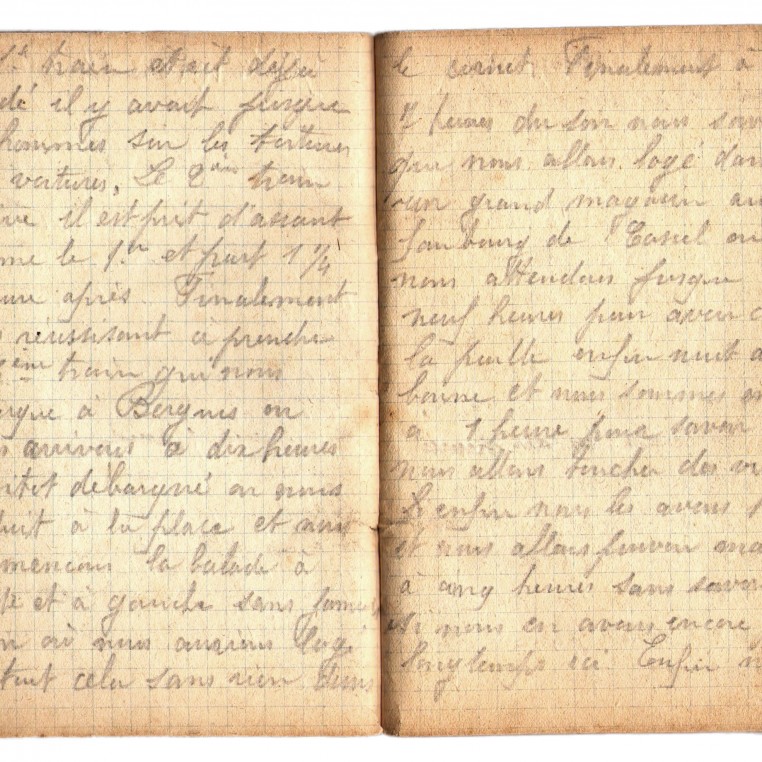 train était déja
dé il y avait jusque
hommes sur les toitures
voitures, Le 2ème train
ive il est prit d'assaut
me le 1er et part 1 1/4
eure après. Finalement
réussisant à prendre
ème train qui nous
arque à Bergues ou
s arrivons à dix heures
ntot débarqué on nous
duit à la place et nous
mencons la balade à
te et à gauche sans jamais
n où nous aurions logé
tout cela sans rien dans
le cornet. Finalement à
7 heures du soir nous savo
que nous allons logé dan
un grand magasin au
faubourg de Cassel ou
nous attendons jusque
neuf heures pour avoir d
la paille enfin nuit a
bonne et nous sommes
à 1 heure pour savoir
nous allons toucher des vi
Et enfin nous les avons
et nous allons pouvoir ma
à cinq heures sans savoir
si nous en avons encore
longtemps ici Enfin n